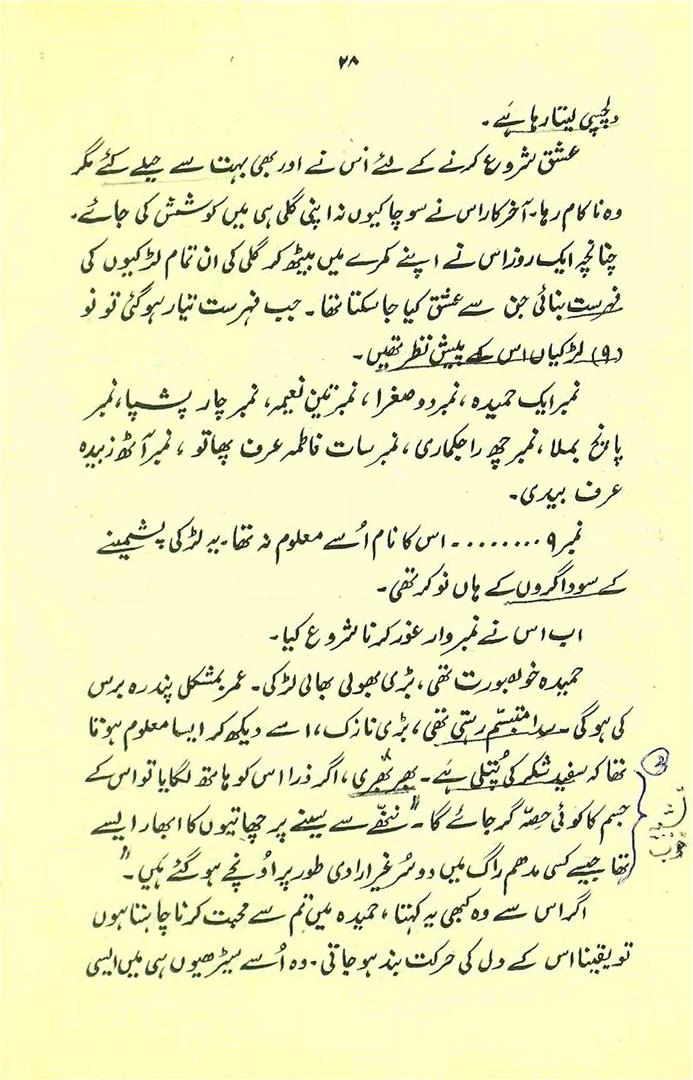 ۲۸
دلچسپی لیتا رہا ہے۔
عشق شروع کرنے کے لئے اس نے اور بھی بہت سے حیلے کئے مگر
وہ ناکام رہا۔ آخر کار اس نے سوچا کیوں نہ اپنی گلی ہی میں کوشش کی جائے۔
چنانچہ ایک روز اس نے اپنے کمرے میں بیٹھ کر گلی کی ان تمام لڑکیوں کی
فہرست بنائی جن سے عشق کیا جا سکتا تھا۔ جب فہرست تیار ہو گئی تو نو
(۹) لڑکیاں اس کے پیش نظر تھیں۔
نمبر ایک حمیدہ، نمبر دو صغرا، نمبر تین نعیمہ، نمبر چار پشپا، نمبر
پانچ بملا، نمبر چھ راجکماری، نمبر سات فاطمہ عرف پھاتو، نمبر آٹھ زبیدہ
عرف بیدی۔
نمبر ۹ ........ اس کا نام اُسے معلوم نہ تھا۔ یہ لڑکی پشمینے
کے سوداگروں کے ہاں نوکر تھی۔
اب اس نے نمبر وار غور کرنا شروع کیا۔
حمیدہ خوبصورت تھی، بڑی بھولی بھالی لڑکی۔ عمر بمشکل پندرہ برس
کی ہو گی۔ سدا متبسّم رہتی تھی، بڑی نازک، اسے دیکھ کر ایسا معلوم ہوتا
تھا کہ سفید شکر کی پُتلی ہے۔ بھر بھری، اگر ذرا اس کو ہاتھ لگایا تو اس کے
جسم کا کوئی حصّہ گر جائے گا۔ "ننھّے سے سینے پر چھاتیوں کا ابھار ایسے
تھا جیسے کسی مدھم راگ میں دو سُر غیر ارادی طور پر اونچے ہو گئے ہیں۔"
اگر اس سے وہ کبھی یہ کہتا، حمیدہ میں تم سے محبت کرنا چاہتا ہوں
تو یقیناً اس کے دل کی حرکت بند ہو جاتی۔ وہ اُسے سیڑھیوں ہی میں ایسی